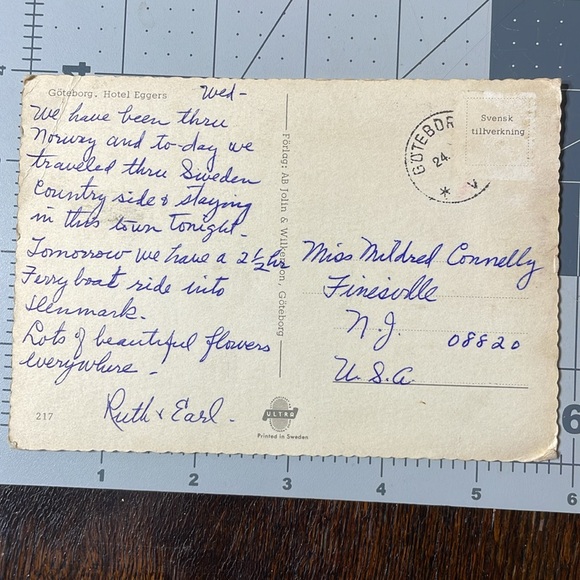 Göteborg. Hotel Eggers
Wed-
We have been thru
Norway and to-day we
traveled thru Sweden
Country side & staying
in this town tonight-
Tomorrow we have a 2 1/2 hr
Ferry boat ride into
Denmark.
Lots of beautiful flowers
everywhere -
Ruth & Earl.
217
Förlag: AB Jolin & Wilkenson, Göteborg
ULTRA
Printed in Sweden
GÖTEBOR
24.
* V
Svensk
tillverkning
Miss Mildred Connelly
Finesville
N.J. 08820
U.S.A.
1 2 3 4 5 6
4